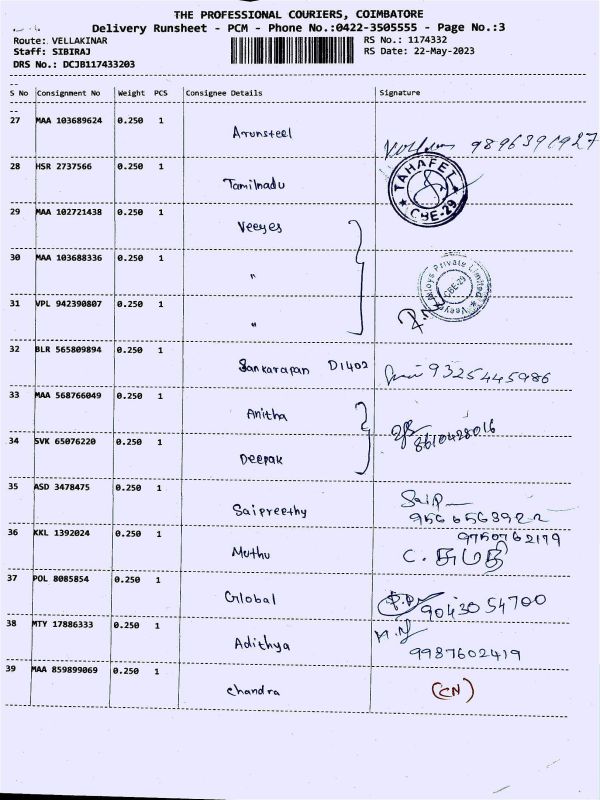 THE PROFESSIONAL COURIERS, COIMBATORE
Delivery Runsheet - PCM - Phone No.:0422-3505555 - Page No.:3
Route: VELLAKINAR RS No.: 1174332
Staff: SIBIRAJ RS Date: 22-May-2023
DRS No.: DCJB117433203
S No Consignment No Weight PCS Consignee Details Signature
27 MAA 103689624 0.250 1 Arunsteel 9896391927
28 HSR 2737566 0.250 1 Tamilnadu TAHAFET CBE-29
29 MAA 102721438 0.250 1 Veeyes
30 MAA 103688336 0.250 1 " Private Limited CBE-29
31 VPL 942390807 0.250 1 "
32 BLR 565809894 0.250 1 Sankarapan D1402 9325445986
33 MAA 568766049 0.250 1 Anitha 8610428016
34 SVK 65076220 0.250 1 Deepak
35 ASD 3478475 0.250 1 Saipreethy Saip
36 KKL 1392024 0.250 1 Muthu 9750762179
C. சுமதி
37 POL 8085854 0.250 1 Global 9043054700
38 MTY 17886333 0.250 1 Adithya 9987602419
39 MAA 859899069 0.250 1 chandra (CN)